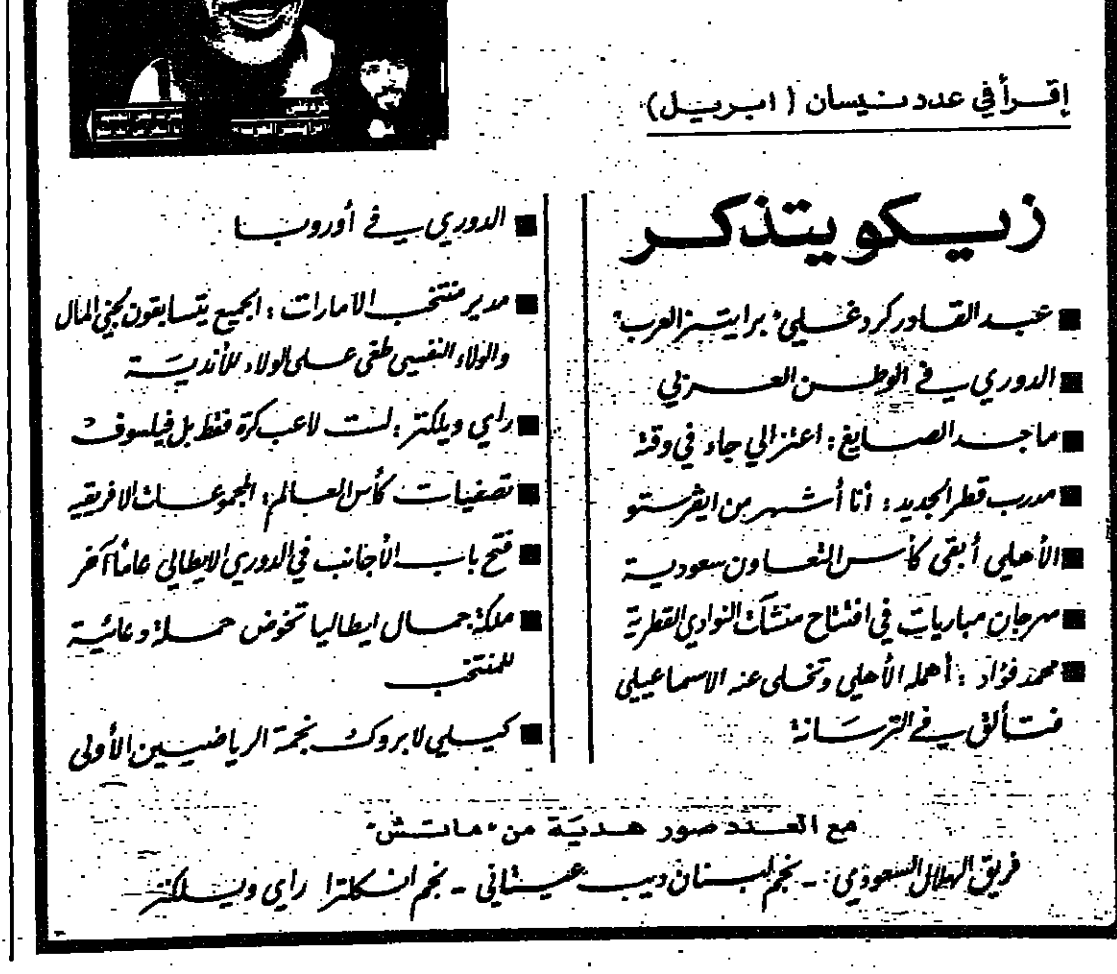 إقرأ في عدد نيسان (ابريل)
زيكو يتذكر
■ عبد القادر كردغلي "برايتنر العرب"
■ الدوري في الوطن العربي
■ ماجد الصايغ: اعتزالي جاء في وقته
■ مدرب قطر الجديد: أنا أشهر من ايفرستو
■ الأهلي أبقى كأس التعاون سعودية
■ مهرجان مباريات في افتتاح منشآت النوادي القطرية
■ محمد فؤاد: أهمله الأهلي وتخلى عنه الاسماعيلي
فتألق في الترسانة
■ الدوري في أوروبا
■ مدير منتخب الامارات: الجميع يتسابقون لجني المال
والولاء النفسي طغى على الولاء للأندية
■ راي ويلكنز: لست لاعب كرة فقط بل فيلسوف
■ تصفيات كأس العالم: المجموعات الافريقيه
■ فتح باب الأجانب في الدوري الايطالي عاماً آخر
■ ملكة جمال ايطاليا تخوض حملة دعائية
للمنتخب
■ كيلي لابروك نجمة الرياضيين الأولى
مع العدد صور هدية من "ماتش"
فريق الهلال السعودي - نجم لبنان ديب عيتاني - نجم انكلترا راي ويلكنز